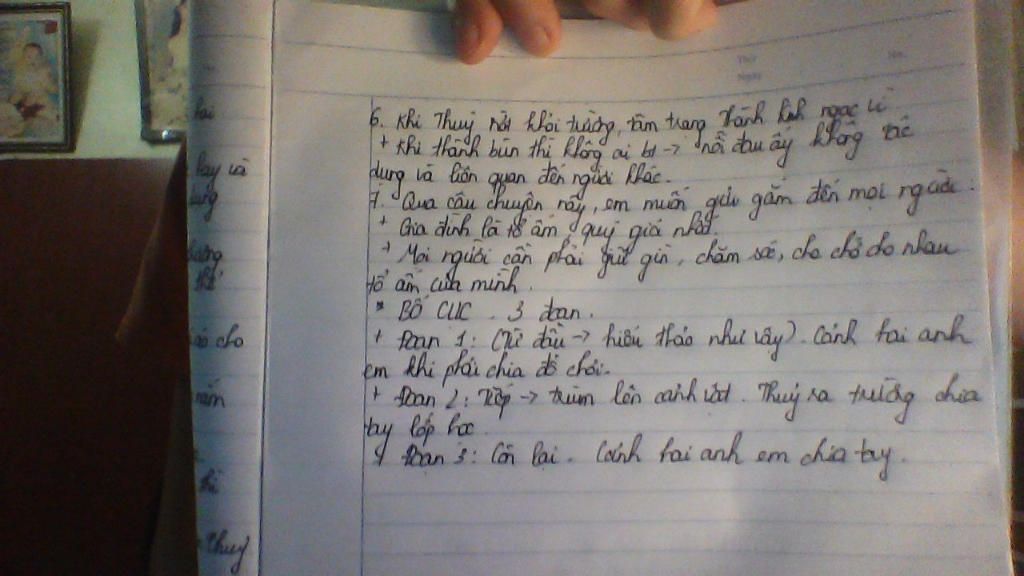 Thứ
No.
Ngày
6. Khi Thuỷ rời khỏi trường, tâm trạng Thành kinh ngạc vì
+ Khi thành buồn thì không ai bt -> nỗi đau ấy không tác
dụng và liên quan đến người khác.
7. Qua câu chuyện này, em muốn gửi gắm đến mọi người:
+ Gia đình là tổ ấm quý giá nhất.
+ Mọi người cần phải giữ gìn, chăm sóc, che chở cho nhau
tổ ấm của mình.
* BỐ CỤC. 3 đoạn.
+ Đoạn 1: (Từ đầu -> hiếu thảo như vậy). Cảnh hai anh
em khi phải chia đồ chơi.
+ Đoạn 2: Tiếp -> trùm lên cảnh vật. Thuỷ ra trường chia
tay lớp học
+ Đoạn 3: Còn lại. Cảnh hai anh em chia tay.
hai
hay và
cho
năm
thì
Thuỷ